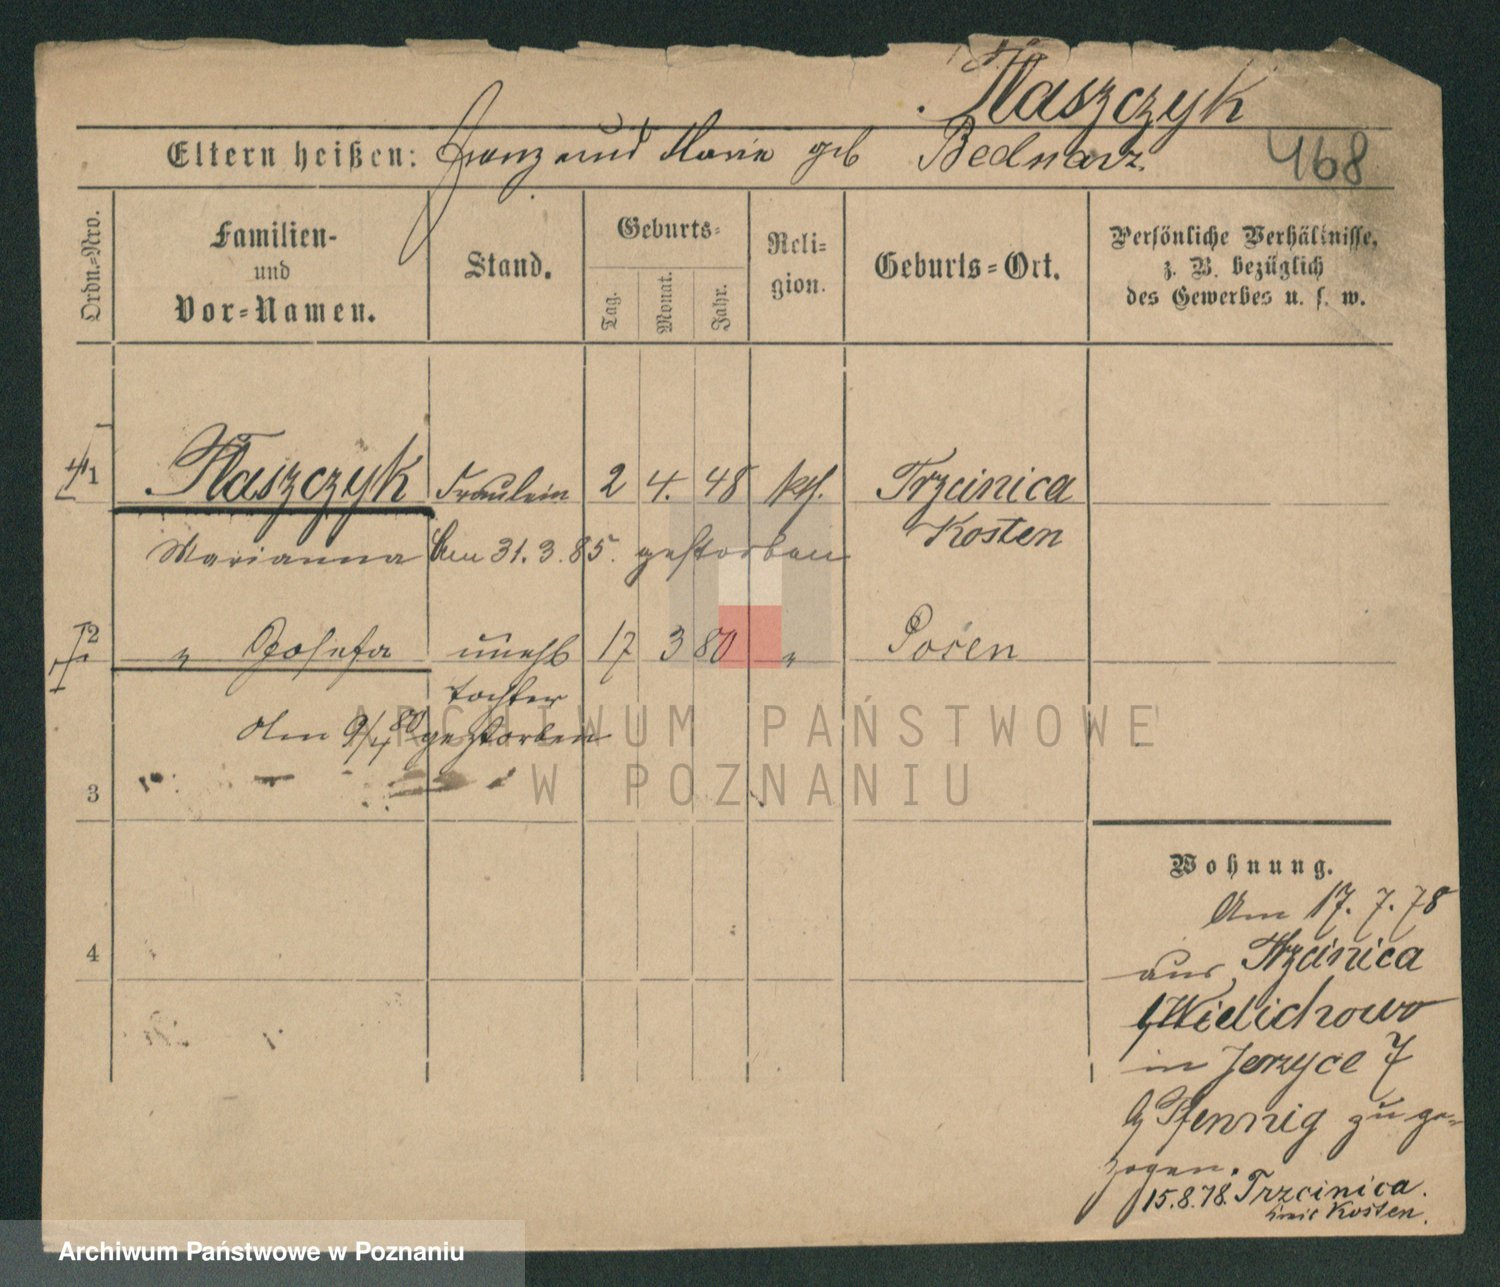 Tłaszczyk
Eltern heißen: Franz und Marie geb Bednarz.
468
Ordn.-Nro.
Familien-
und
Vor-Namen.
Stand.
Geburts-
Tag.
Monat.
Jahr.
Reli-
gion.
Geburts-Ort.
Persönliche Verhältnisse,
z. B. bezüglich
des Gewerbes u. s. w.
1 Tłaszczyk Fräulein 2 4. 48 kth. Trzcinica
Kosten
Marianna Am 31.3.85. gestorben
2 " Josefa unehl 17 3 80 " Posen
tochter
Am 9/4 80 gestorben
3
4
Wohnung.
Am 17. 7. 78
aus Trzcinica
b/Wielichowo
in Jerzyce 7
b/ Pfennig zu ge-
zogen.
15.8.78. Trzcinica.
Kreis Kosten.
ARCHIWUM PAŃSTWOWE
W POZNANIU
Archiwum Państwowe w Poznaniu